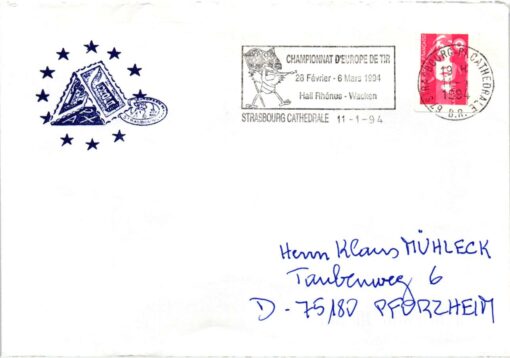 CHAMPIONNAT D'EUROPE DE TIR
28 Février - 6 Mars 1994
Hall Rhénus - Wacken
STRASBOURG CATHEDRALE 11-1-94
STRASBOURG CATHEDRALE
1994
67 B.R.
Herrn Klaus MÜHLECK
Taubenweg 6
D-75180 PFORZHEIM